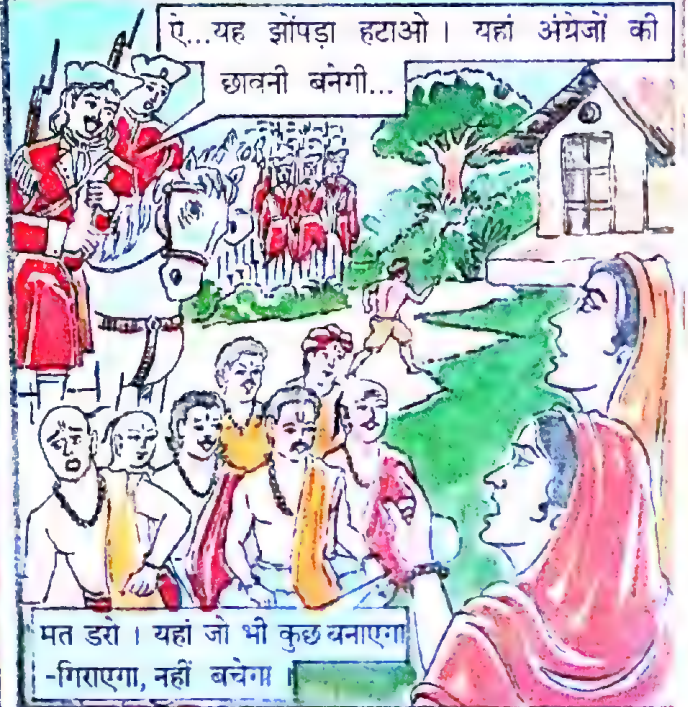 ऐ...यह झोंपड़ा हटाओ । यहां अंग्रेजों की
छावनी बनेगी...
मत डरो । यहां जो भी कुछ बनाएगा
-गिराएगा, नहीं बचेगा ।